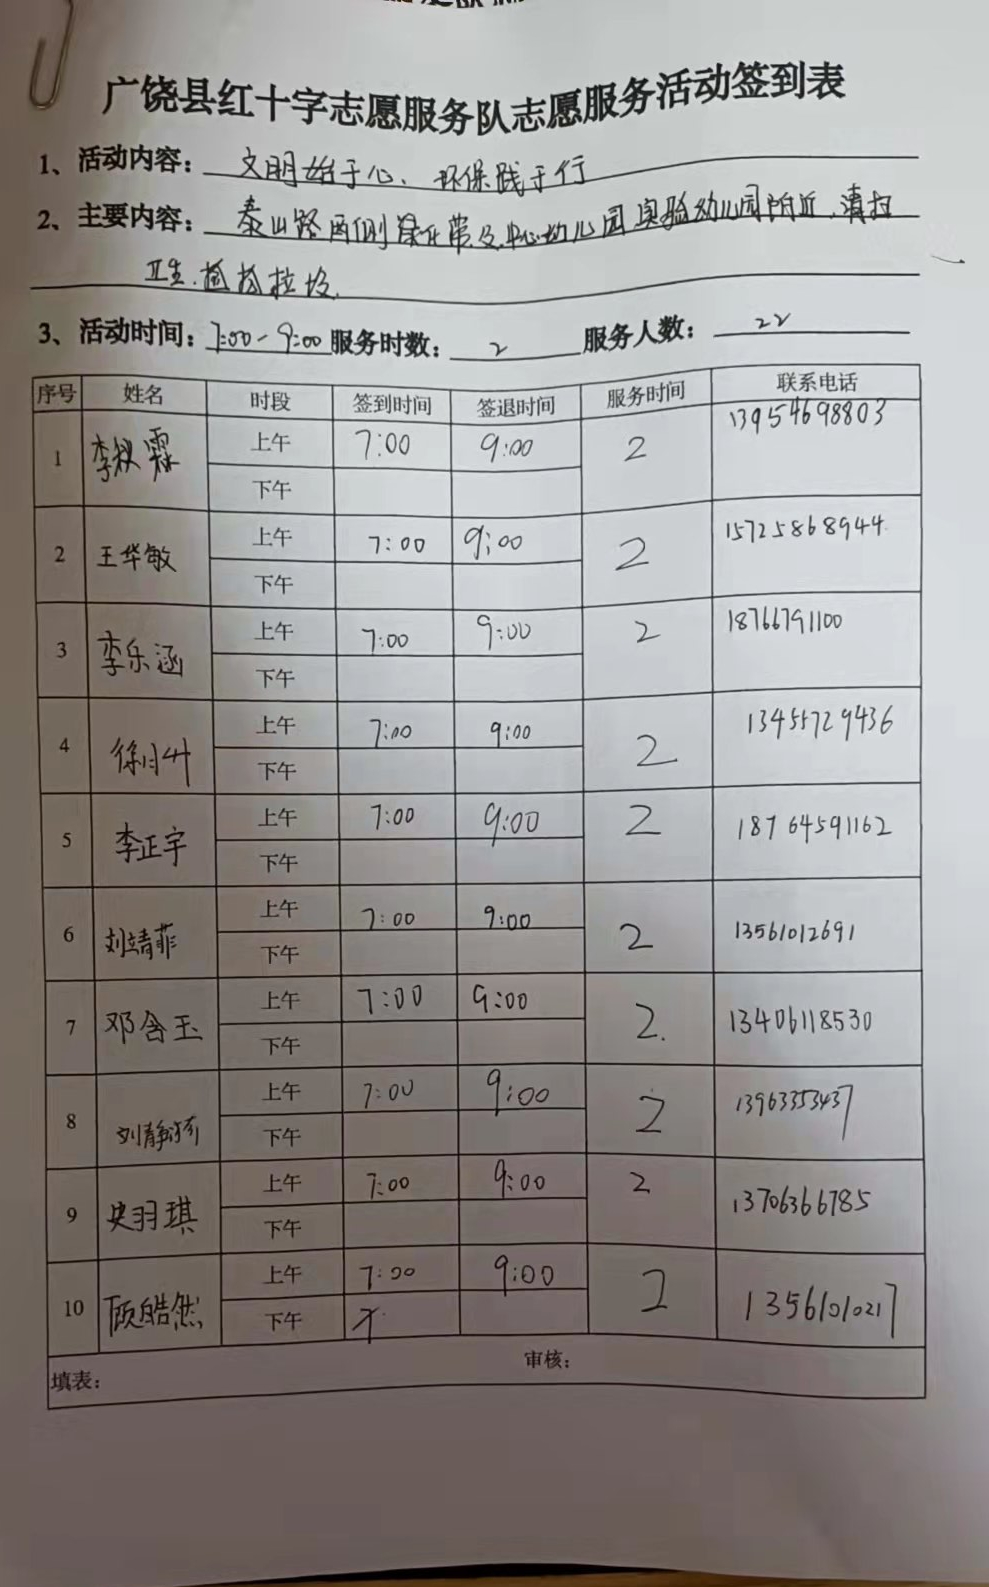 广饶县红十字志愿服务队志愿服务活动签到表
1、活动内容：文明始于心、环保践于行
2、主要内容：泰山路两侧绿化带及中心幼儿园实验幼儿园附近，清扫
卫生.捡拾垃圾.
3、活动时间：7:00-9:00 服务时数：2 服务人数：22
序号 姓名 时段 签到时间 签退时间 服务时间 联系电话
1 李秋霖 上午 7:00 9:00 2 13954698803
下午
2 王华敏 上午 7:00 9:00 2 15725868944
下午
3 李乐涵 上午 7:00 9:00 2 18766791100
下午
4 上午 7:00 9:00 2 13455729436
下午
5 李正宇 上午 7:00 9:00 2 18764591162
下午
6 刘靖菲 上午 7:00 9:00 2 13561012691
下午
7 邓含玉 上午 7:00 9:00 2. 13406118530
下午
8 上午 7:00 9:00 2 13963353437
下午
9 史羽琪 上午 7:00 9:00 2 13706366785
下午
10 顾皓然 上午 7:00 9:00 2 13561010217
下午
填表： 审核：